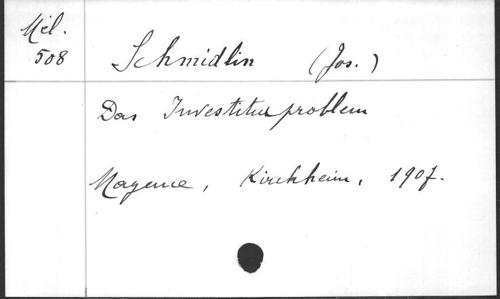 Mél.
508
Schmidlin (Jos.)
Das Investiturproblem
Mayence, Kirchheim, 1907.